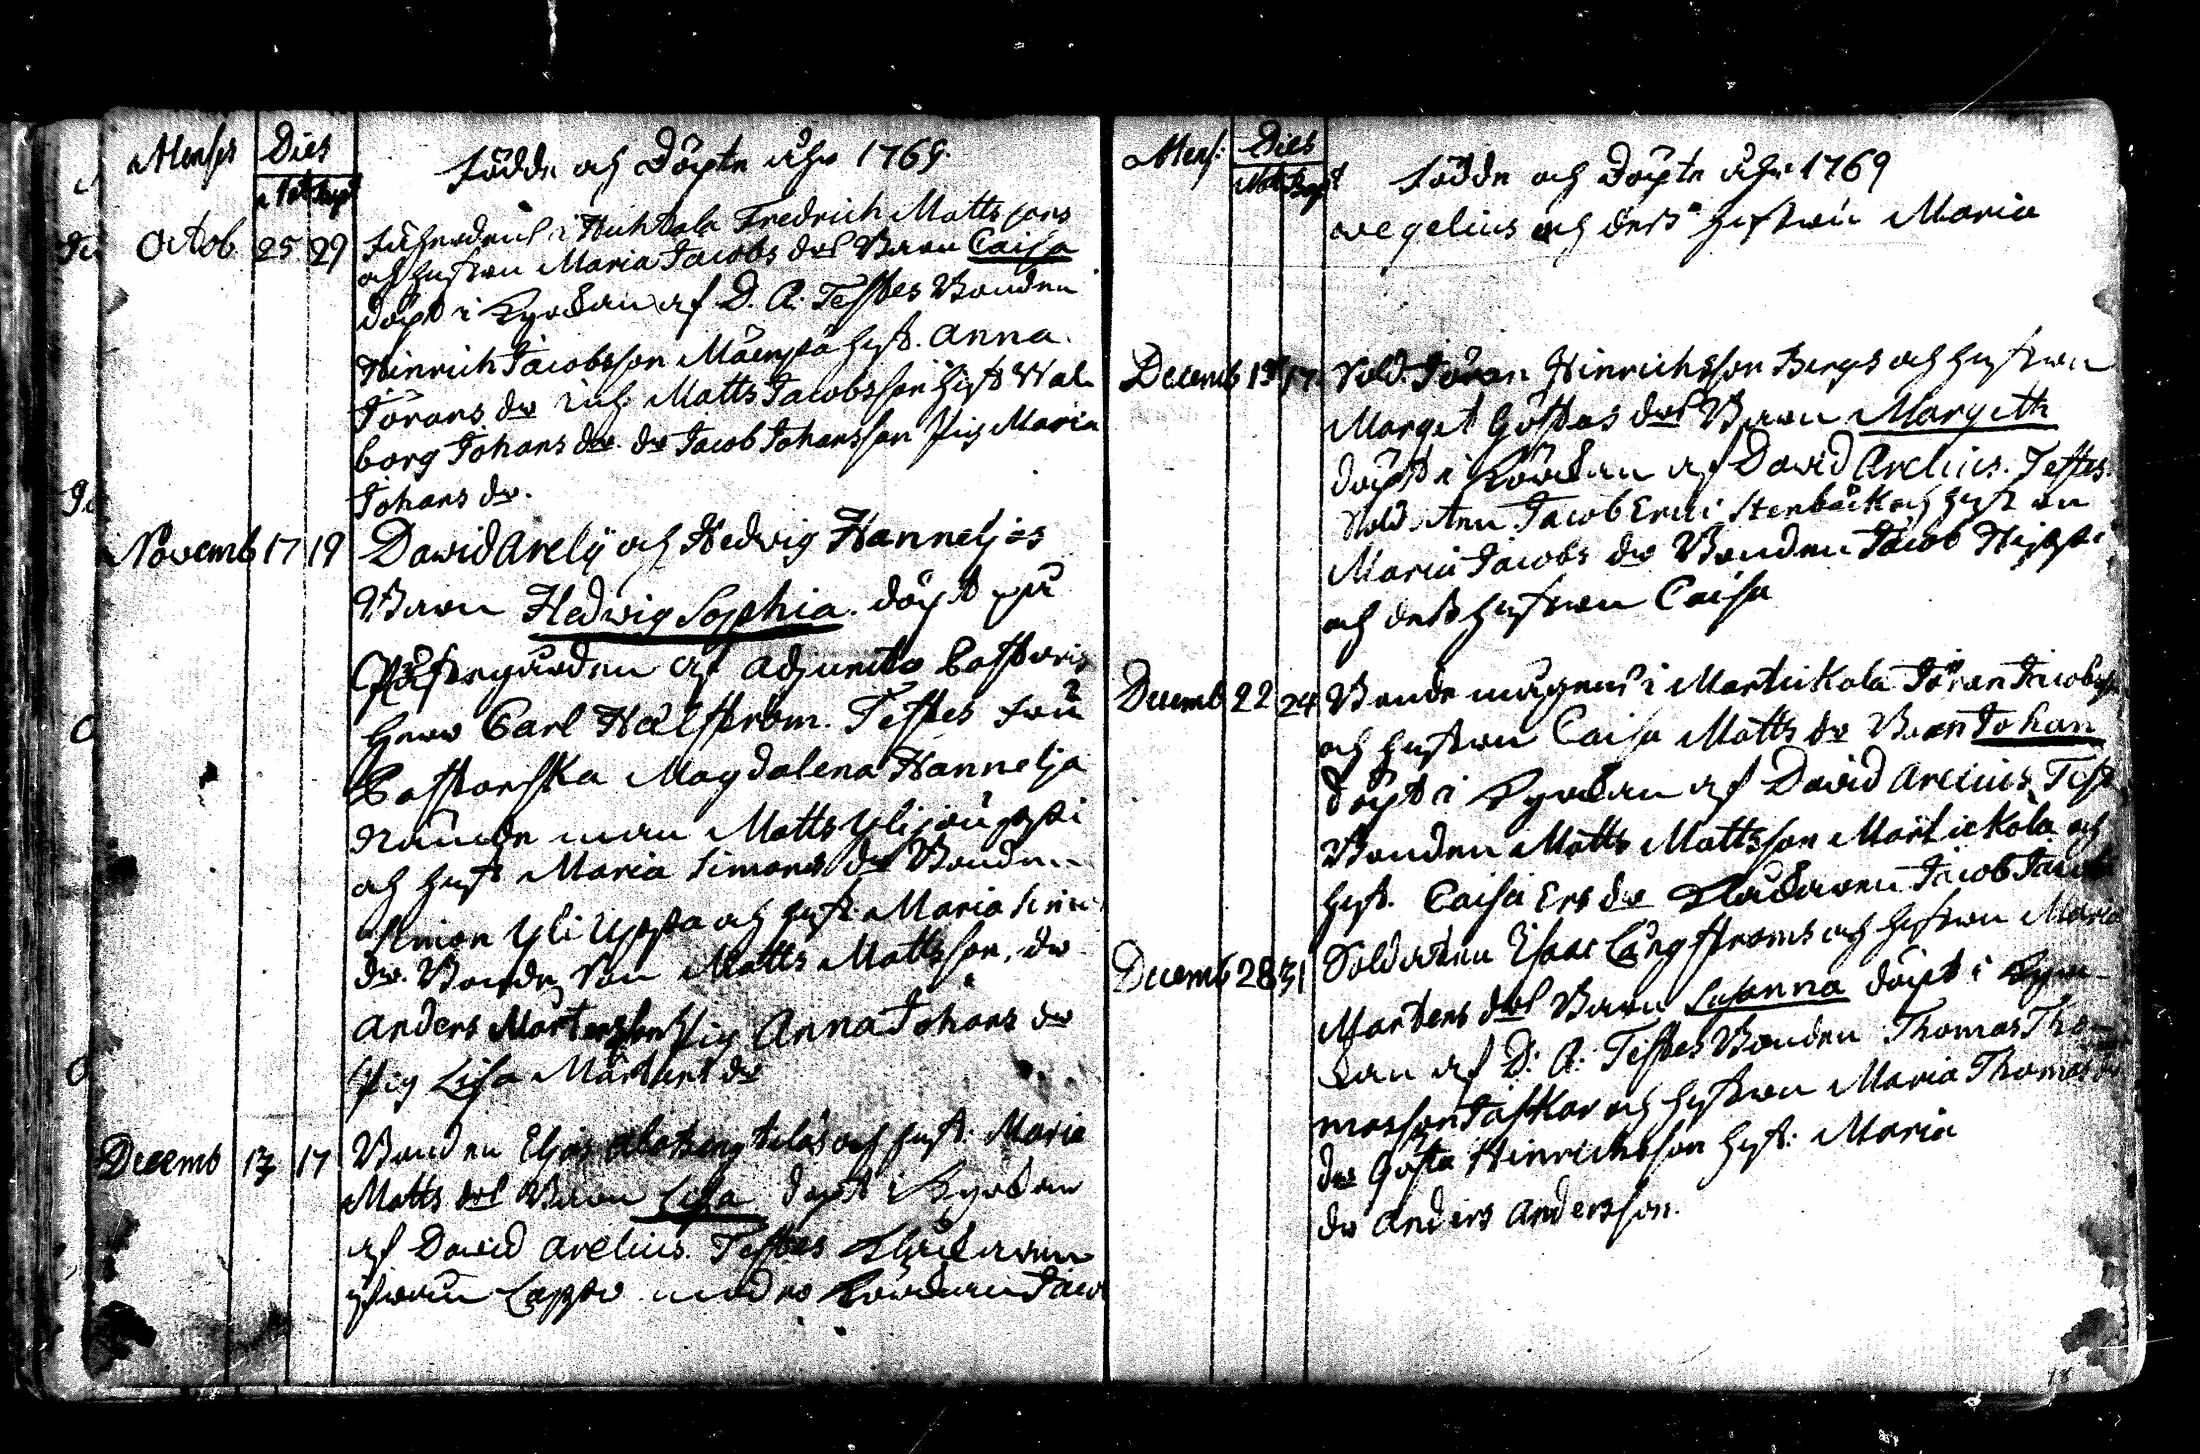 Mensis Dies
Nat Bapt
Födde och Döpte åhr 1769.
Octob 25 29 i Huhtala Fredrich Mattssons
och hustrun Maria Jacobs dotr Barn Caisa
döpt i Kyrckan af D. A. Testes Bonden
Hinrich Jacobsson Mäenpä hust. Anna
Jörans dr Matts Jacobsson hust Wal
borg Johans dr. dr Jacob Johansson Pig Maria
Johans dr.
Novemb 17 19 David Arelij och Hedvig Hanneljas
Barn Hedvig Sophia. döpt på
Prästegården af Adjuncto Pastoris
Herr Carl Hälström. Testes Fru
Pastorska Magdalena Hannelja
Nämde man Matts Ylijouppi
och hust Maria Simons dr Bonden
Simon Yli Uppa och hust. Maria Simo
dr. Bonde Son Matts Mattsson, dr
Anders Mårtensson Pig Anna Johans dr
Pig Lisa Mårtens dr
Decemb 13 17 Bonden Eljas och hust. Maria
Matts dotr Barn Lisa döpt i Kyrckan
af David Arelius. Testes Klåckaren
Lappo med Jaco
Mens: Dies
Nat Bapt
Födde och Döpte åhr 1769
wegelius och dess hustru Maria
Decemb 13 17 Sold. Jöran Hinrichsson Bergs och hustrun
Marget Göstas dotr Barn Margeth
döpt i Kyrckan af David Arelius. Testes.
Sold. Jacob Stenbäck och hustrun
Maria Jacobs dr Bonden Jacob
och dess hustrun Caisa
Decemb 22 24 Bonde mågens i Martickala Jöran Jacobss
och hustrun Caisa Matts dr Barn Johan
döpt i Kyrckan af David Arelius, Test
Bonden Matts Mattsson Martickala och
hust. Caisa Ers dr Klåckaren Jacob Jacob
Decemb 28 31 Soldaten Isaac Långströms och hustrun Maria
Mårtens dotr Barn Susanna döpt i Kyrc
kan af D: A: Testes Bonden Thomas Tho
masson Taskar och hustrun Maria Thomas dr
dr Gösta Hinrichsson hust: Maria
dr Anders Andersson.